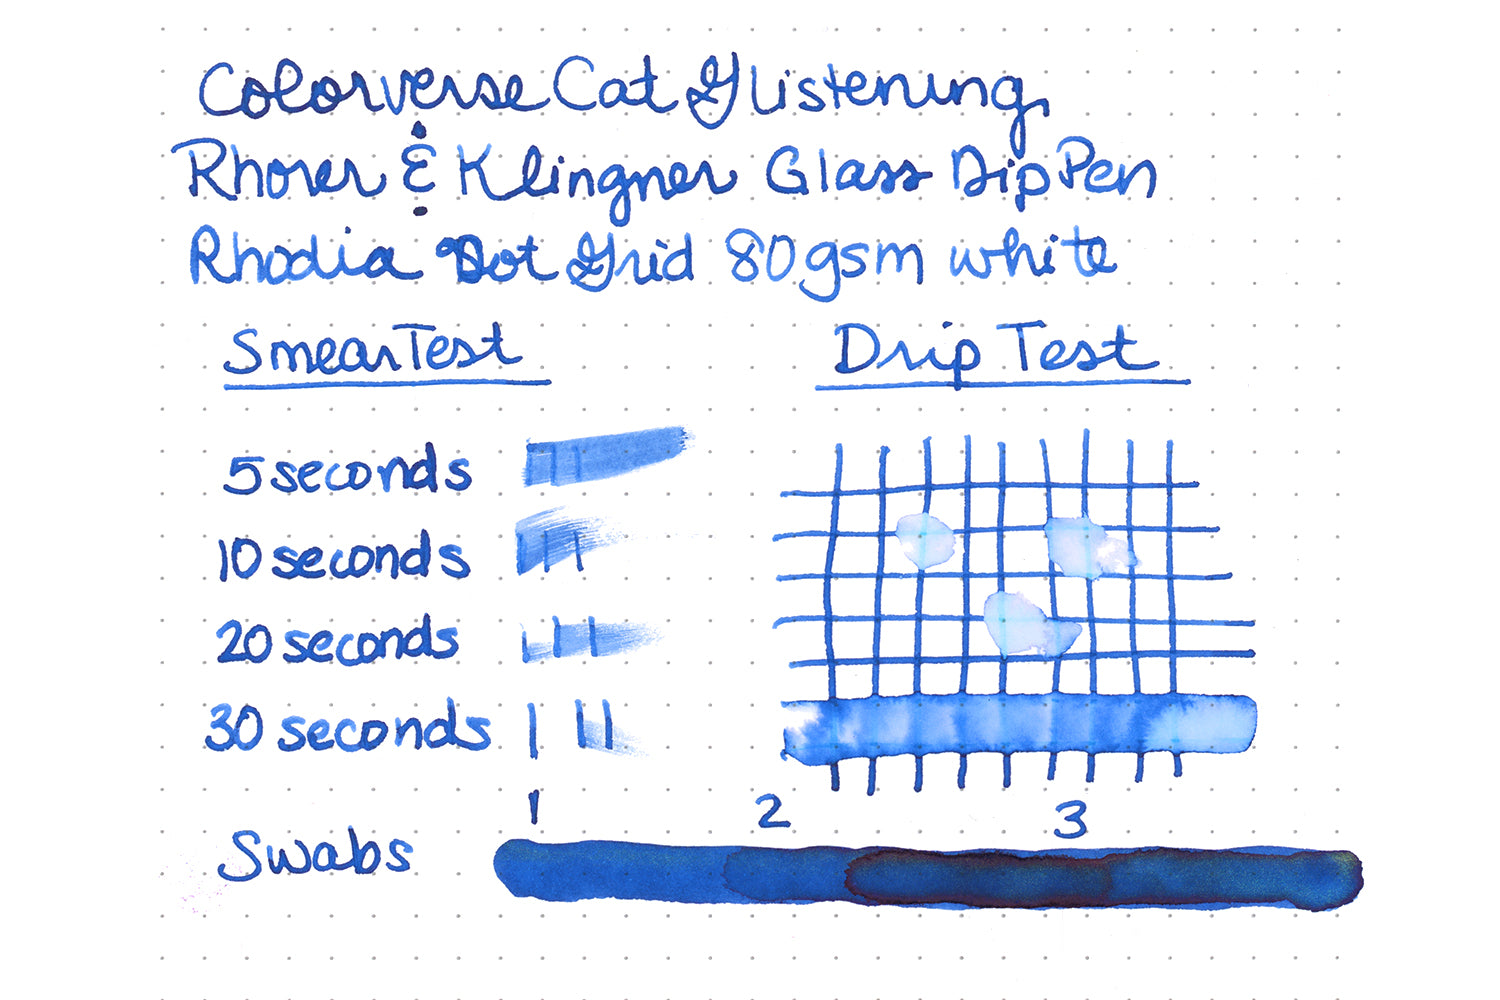 Colorverse Cat Glistening
Rhorer & Klingner Glass Dip Pen
Rhodia Dot Grid 80gsm white
Smear Test
Drip Test
5 seconds
10 seconds
20 seconds
30 seconds
1 2 3
Swabs